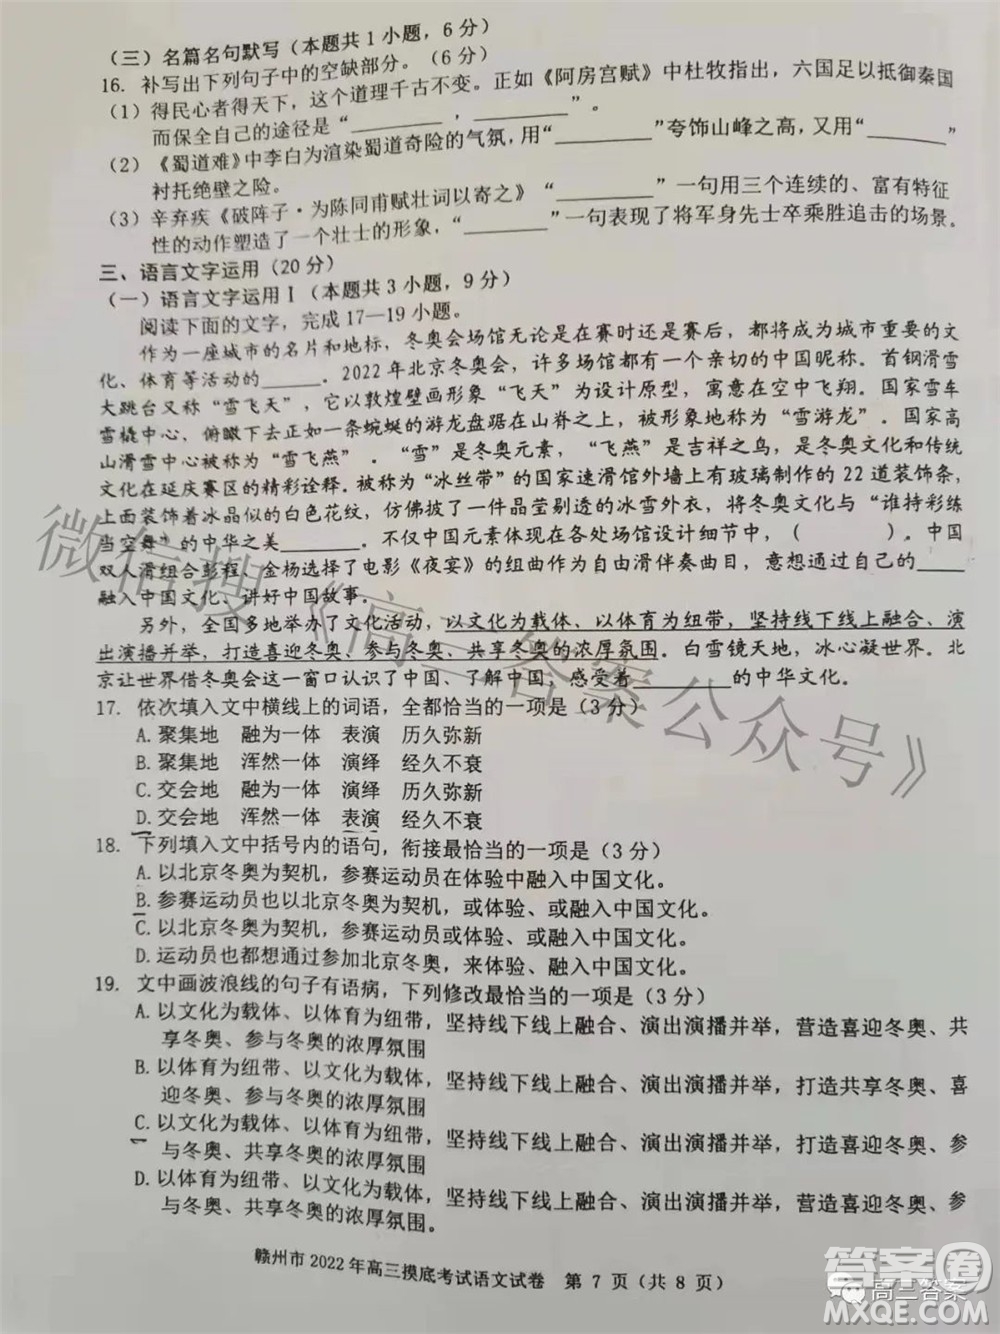 （三）名篇名句默写（本题共1小题，6分）
16. 补写出下列句子中的空缺部分。（6分）
（1）得民心者得天下，这个道理千古不变。正如《阿房宫赋》中杜牧指出，六国足以抵御秦国
而保全自己的途径是“________，________”。
（2）《蜀道难》中李白为渲染蜀道奇险的气氛，用“________”夸饰山峰之高，又用“________”
衬托绝壁之险。
（3）辛弃疾《破阵子·为陈同甫赋壮词以寄之》“________”一句用三个连续的、富有特征
性的动作塑造了一个壮士的形象，“________”一句表现了将军身先士卒乘胜追击的场景。
三、语言文字运用（20分）
（一）语言文字运用Ⅰ（本题共3小题，9分）
阅读下面的文字，完成17—19小题。
作为一座城市的名片和地标，冬奥会场馆无论是在赛时还是赛后，都将成为城市重要的文
化、体育等活动的______。2022年北京冬奥会，许多场馆都有一个亲切的中国昵称。首钢滑雪
大跳台又称“雪飞天”，它以敦煌壁画形象“飞天”为设计原型，寓意在空中飞翔。国家雪车
雪橇中心，俯瞰下去正如一条蜿蜒的游龙盘踞在山脊之上，被形象地称为“雪游龙”。国家高
山滑雪中心被称为“雪飞燕”。“雪”是冬奥元素，“飞燕”是吉祥之鸟，是冬奥文化和传统
文化在延庆赛区的精彩诠释。被称为“冰丝带”的国家速滑馆外墙上有玻璃制作的22道装饰条，
上面装饰着冰晶似的白色花纹，仿佛披了一件晶莹剔透的冰雪外衣，将冬奥文化与“谁持彩练
当空舞”的中华之美________。不仅中国元素体现在各处场馆设计细节中，（　　　　）。中国
双人滑组合彭程、金杨选择了电影《夜宴》的组曲作为自由滑伴奏曲目，意想通过自己的______
融入中国文化、讲好中国故事。
另外，全国多地举办了文化活动，以文化为载体、以体育为纽带，坚持线下线上融合、演
出演播并举，打造喜迎冬奥、参与冬奥、共享冬奥的浓厚氛围。白雪镜天地，冰心凝世界。北
京让世界借冬奥会这一窗口认识了中国、了解中国，感受着________的中华文化。
17. 依次填入文中横线上的词语，全都恰当的一项是（3分）
A. 聚集地　融为一体　表演　历久弥新
B. 聚集地　浑然一体　演绎　经久不衰
C. 交会地　融为一体　演绎　历久弥新
D. 交会地　浑然一体　表演　经久不衰
18. 下列填入文中括号内的语句，衔接最恰当的一项是（3分）
A. 以北京冬奥为契机，参赛运动员在体验中融入中国文化。
B. 参赛运动员也以冬奥为契机，或体验、或融入中国文化。
C. 以北京冬奥为契机，参赛运动员或体验、或融入中国文化。
D. 运动员也都想通过参加北京冬奥，来体验、融入中国文化。
19. 文中画波浪线的句子有语病，下列修改最恰当的一项是（3分）
A. 以文化为载体、以体育为纽带，坚持线下线上融合、演出演播并举，营造喜迎冬奥、共
享冬奥、参与冬奥的浓厚氛围
B. 以体育为纽带、以文化为载体，坚持线下线上融合、演出演播并举，打造共享冬奥、喜
迎冬奥、参与冬奥的浓厚氛围
C. 以文化为载体、以体育为纽带，坚持线下线上融合、演出演播并举，打造喜迎冬奥、参
与冬奥、共享冬奥的浓厚氛围。
D. 以体育为纽带、以文化为载体，坚持线下线上融合、演出演播并举，营造喜迎冬奥、参
与冬奥、共享冬奥的浓厚氛围。
赣州市2022年高三摸底考试语文试卷　第7页（共8页）
微信搜《高三答案公众号》
答案圈
高三答案
MXQE.COM